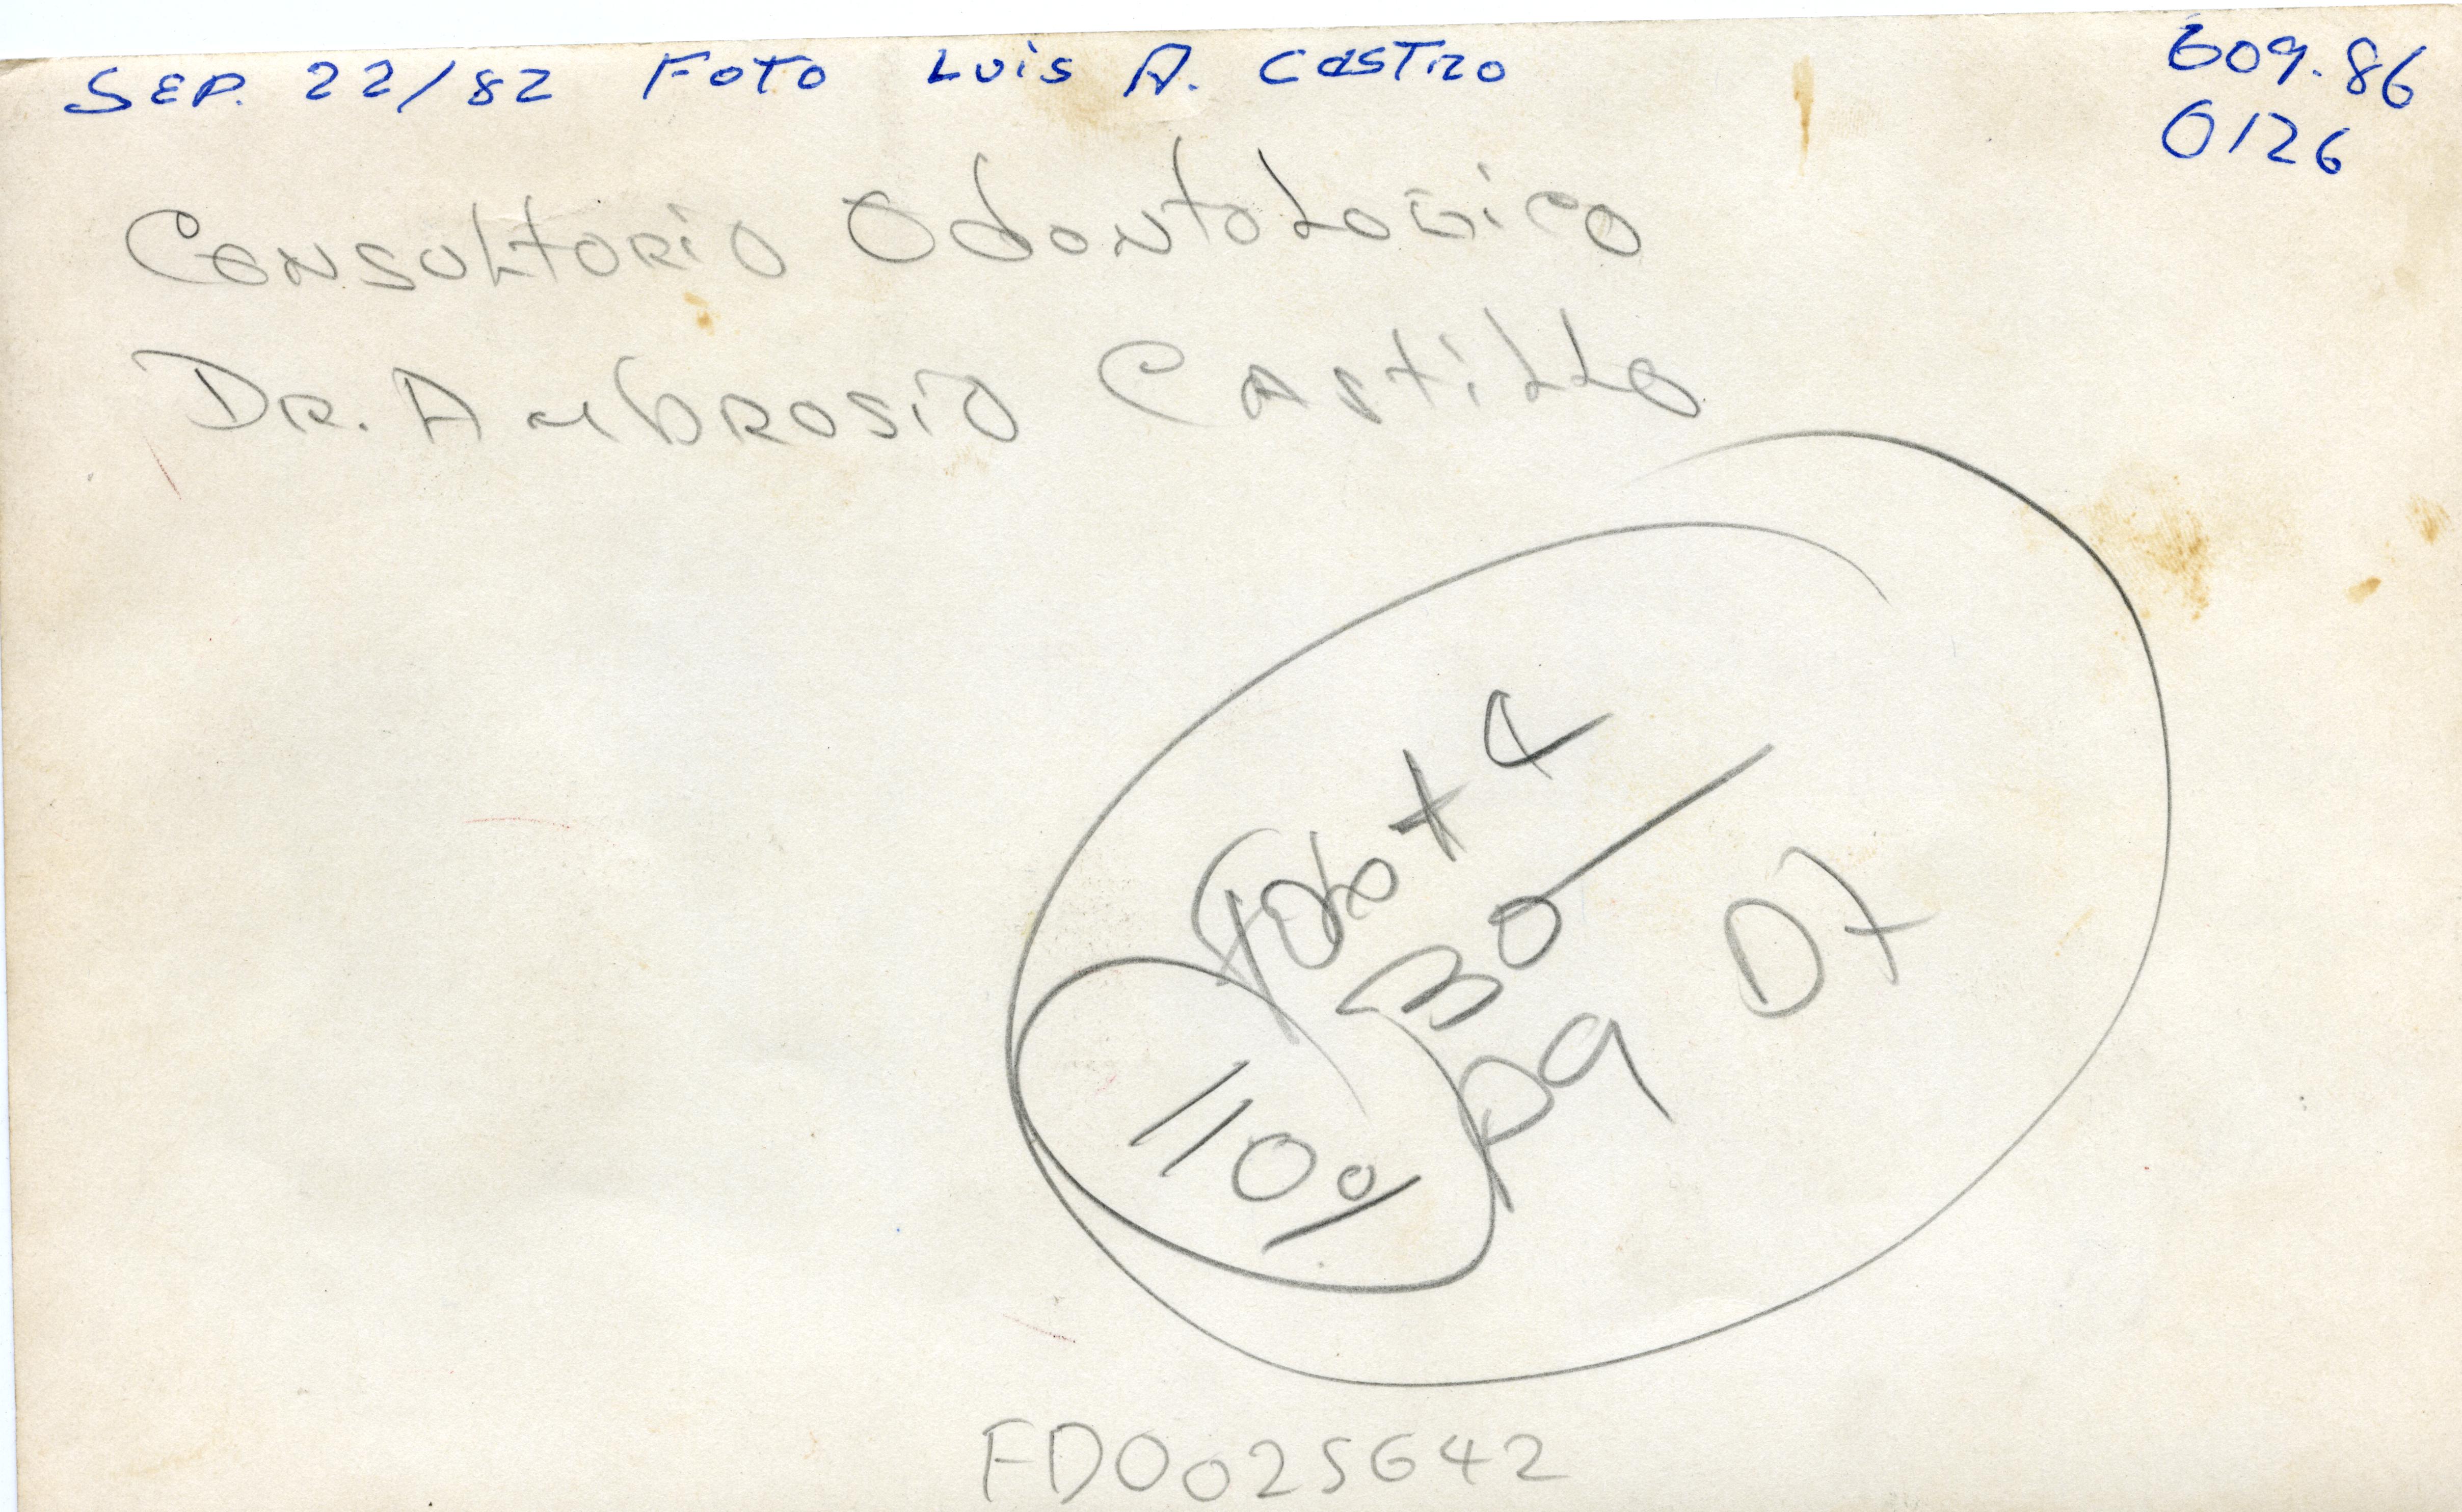 SEP. 22/82 Foto Luis A. Castro
609.86
0126
Consultorio Odontologico
Dr. Ambrosio Castillo
Foto x 4
Bo
pq D7
110%
FD0025642